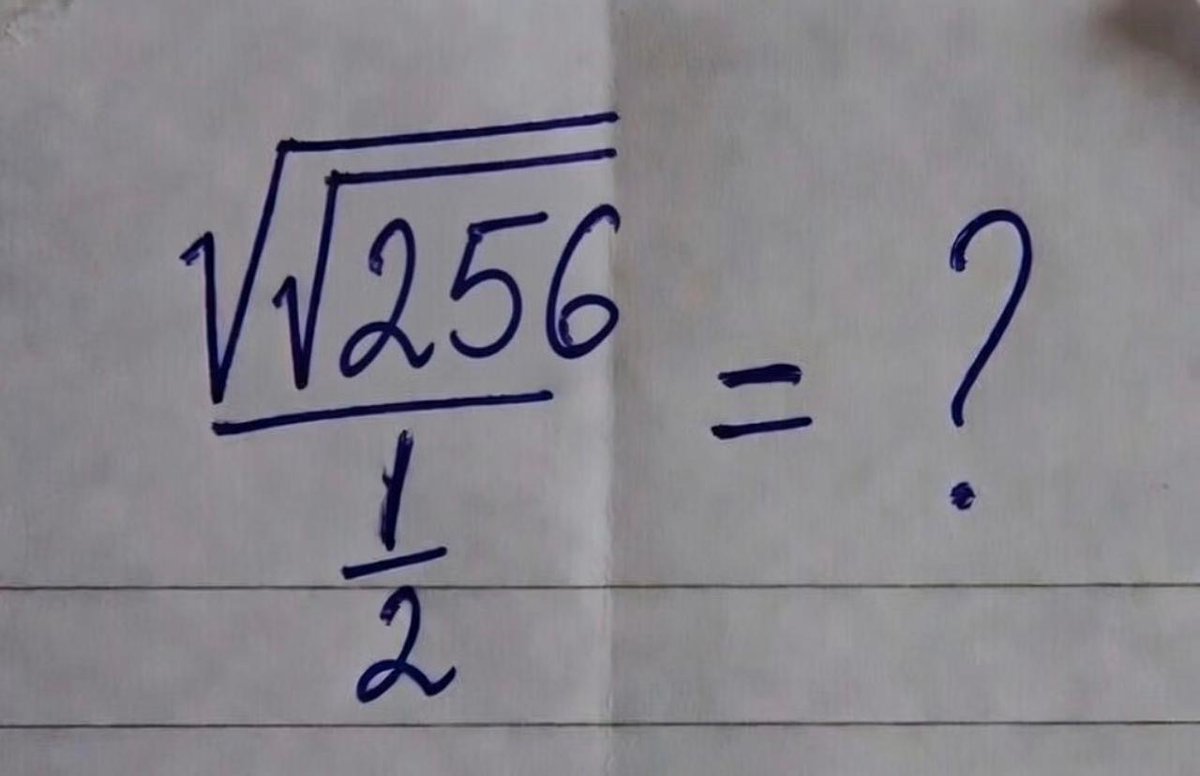 √√256
1
2
= ?